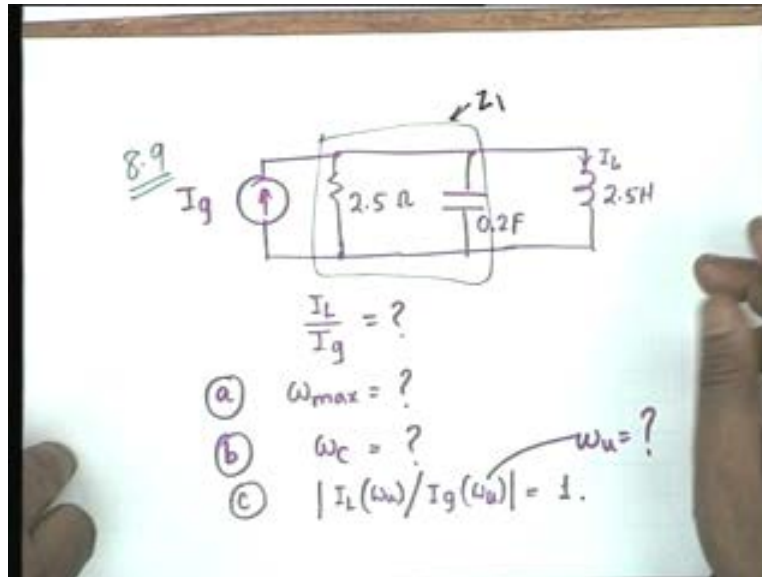 Z1
8.9
Ig
2.5 Ω
0.2F
IL
2.5H
IL/Ig = ?
(a) ωmax = ?
(b) ωc = ?
ωu = ?
(c) |IL(ωu)/Ig(ωu)| = 1.